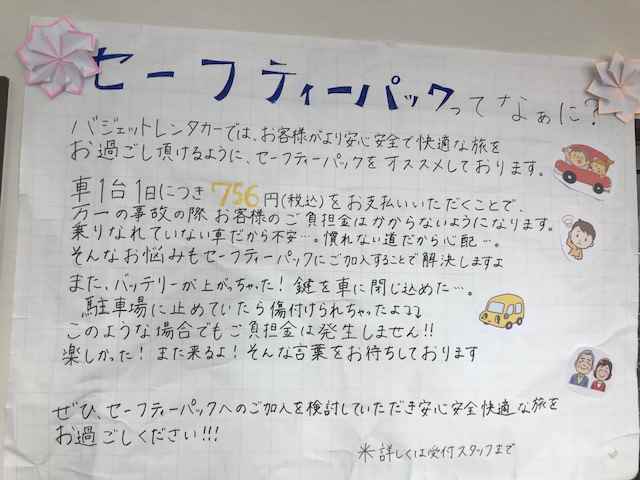 セーフティーパックってなぁに?
バジェットレンタカーでは、お客様がより安心安全で快適な旅を
お過ごし頂けるように、セーフティーパックをオススメしております。
車1台1日につき756円(税込)をお支払いいただくことで、
万一の事故の際 お客様のご負担金はかからないようになります。
乗りなれていない車だから不安…。慣れない道だから心配…。
そんなお悩みもセーフティーパックにご加入することで解決しますよ
また、バッテリーが上がっちゃった! 鍵を車に閉じ込めた…。
駐車場に止めていたら傷付けられちゃったよ
このような場合でもご負担金は発生しません!!
楽しかった! また来るよ! そんな言葉をお待ちしております
ぜひ、セーフティーパックへのご加入を検討していただき安心安全快適な旅を
お過ごしください!!!
※詳しくは受付スタッフまで